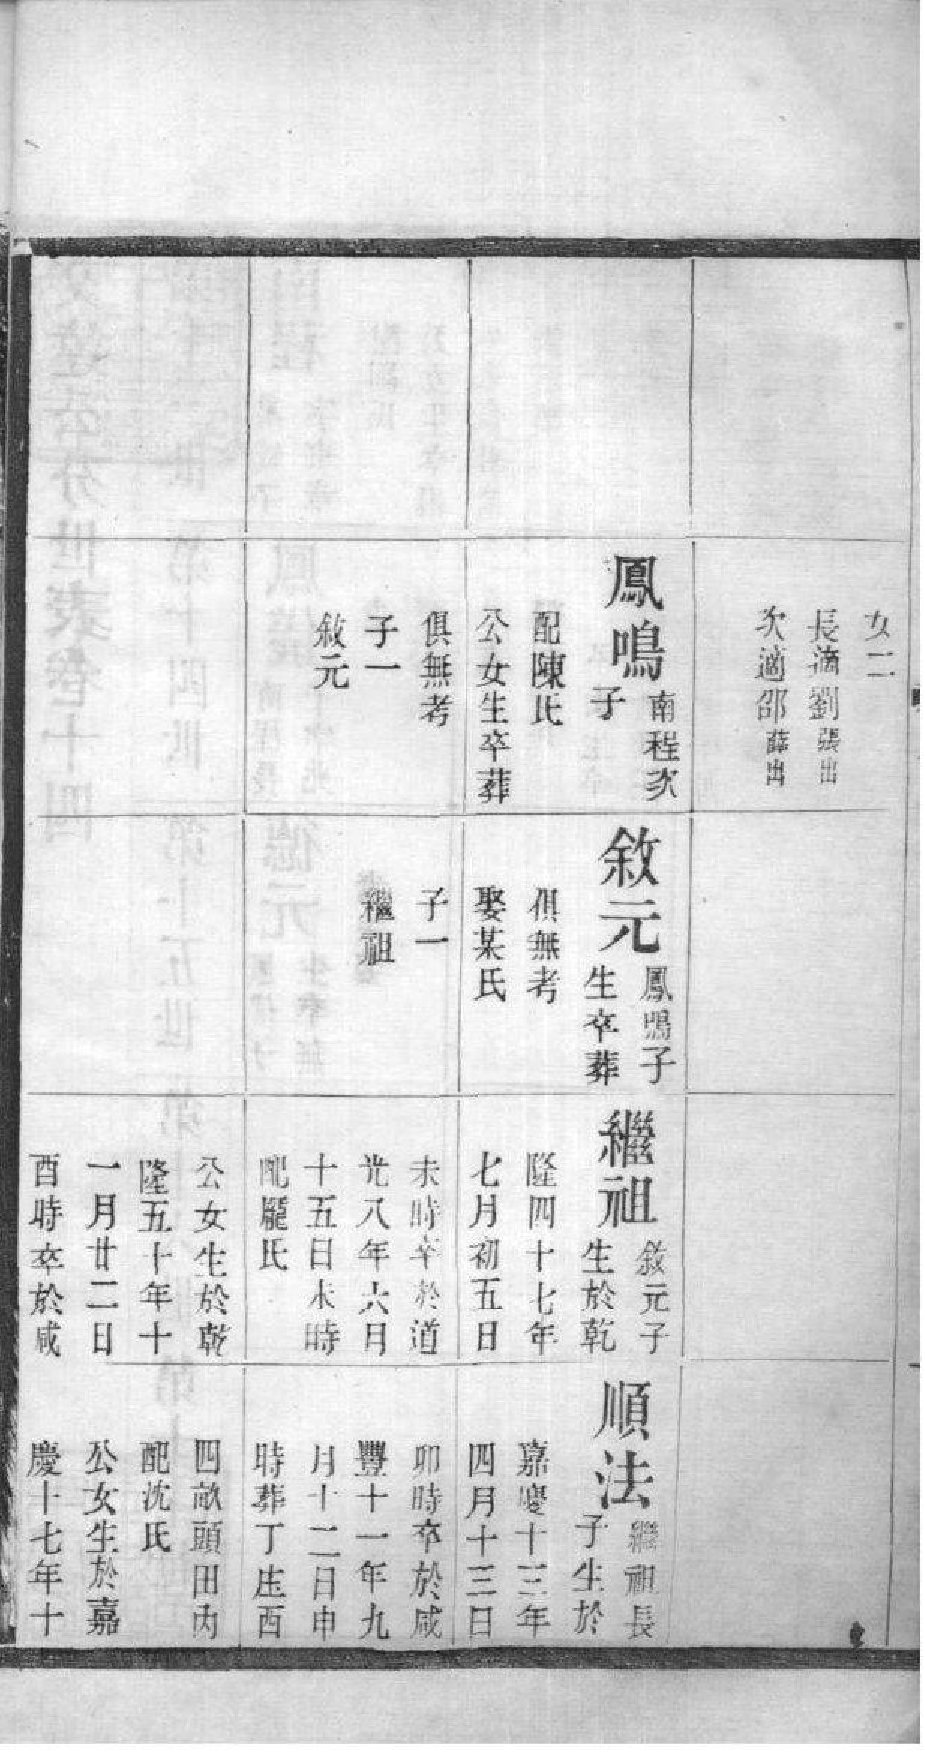 女二
長適劉張出
次適邵薛出
鳳鳴
南程次
子
配陳氏
公女生卒葬
俱無考
子一
敘元
敘元
鳳鳴子
生卒葬
俱無考
娶某氏
子一
繼祖
繼祖
敘元子
生於乾
隆四十七年
七月初五日
未時卒於道
光八年六月
十五日未時
配龎氏
公女生於乾
隆五十年十
一月廿二日
酉時卒於咸
順法
繼祖長
子生於
嘉慶十三年
四月十三日
卯時卒於咸
豐十一年九
月十二日申
時葬丁庄西
四畝頭田內
配沈氏
公女生於嘉
慶十七年十